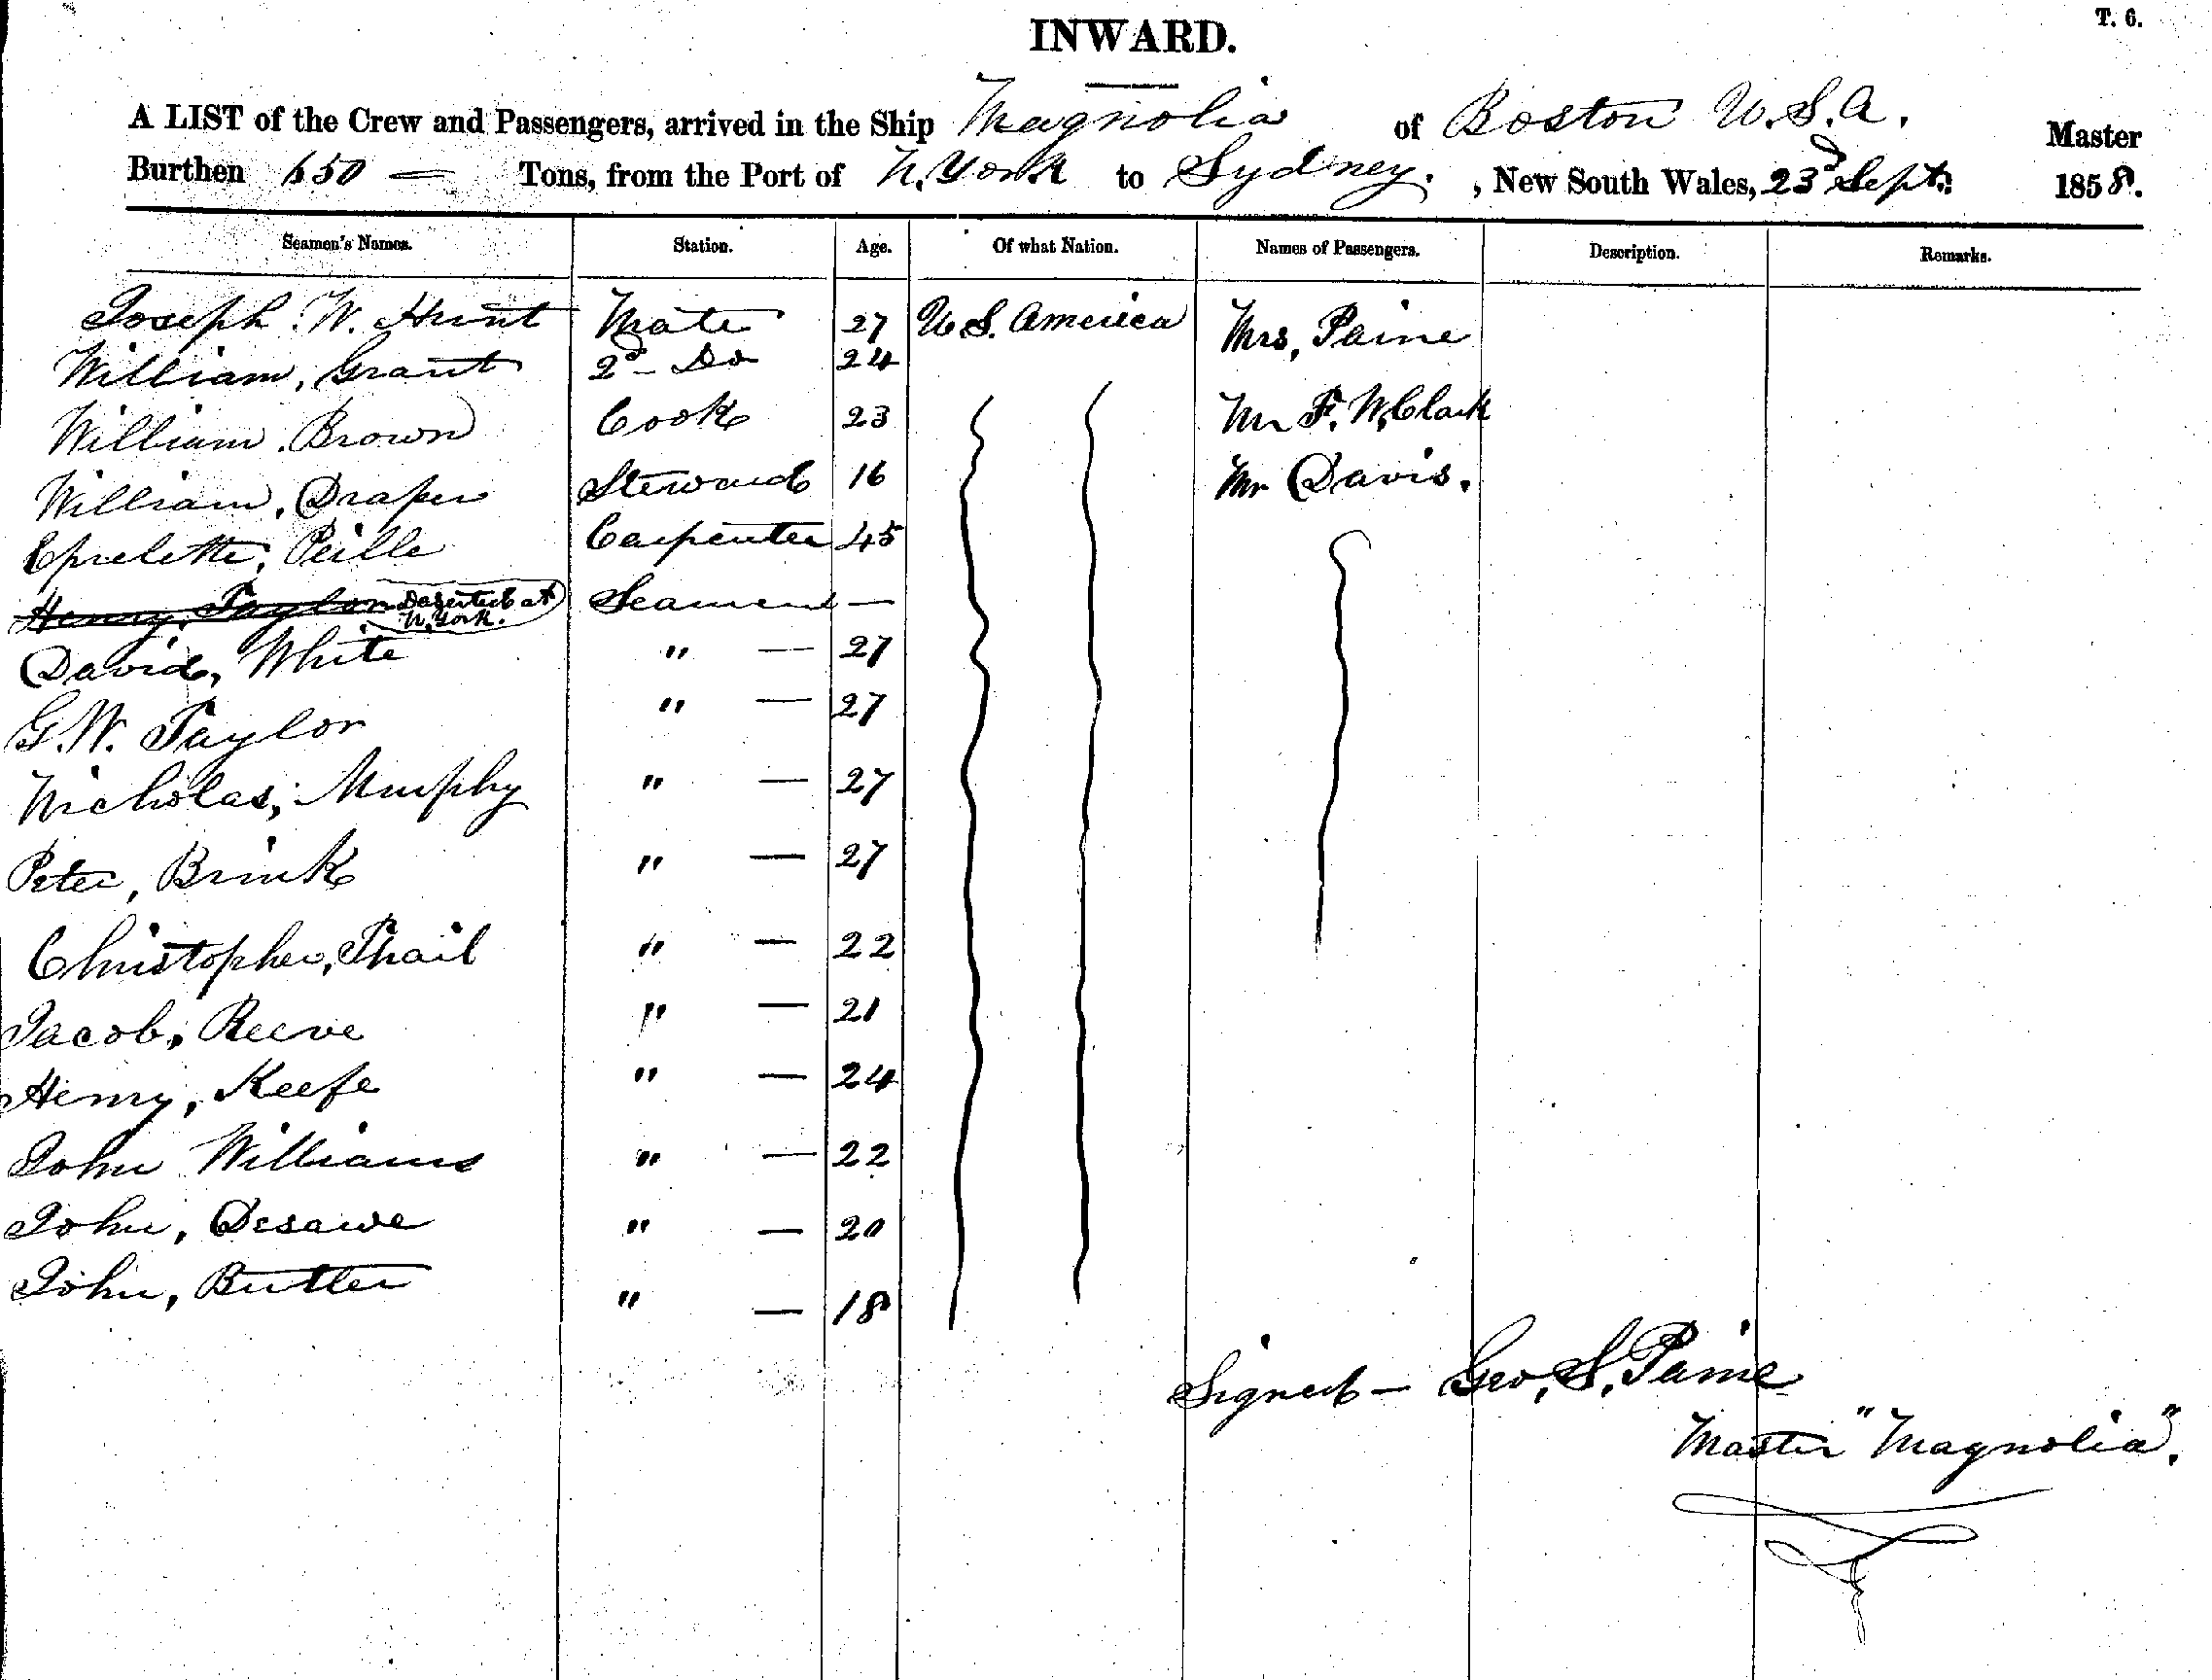 T. 6.
INWARD.
A LIST of the Crew and Passengers, arrived in the Ship Magnolia of Boston U.S.A. Master
Burthen 650 — Tons, from the Port of N. York to Sydney. , New South Wales, 23d Sept. 1858.
Seamen's Names. Station. Age. Of what Nation. Names of Passengers. Description. Remarks.
Joseph. W. Hunt Mate 27 U.S. America Mrs, Paine
William, Grant 2d - Do 24
William. Brown Cook 23 Mr F. W. Clark
William, Draper Steward 16 Mr Davis.
Peille Carpenter 45
Henry, Taylor Deserted at N. York. Seamen —
David, White " — 27
G.W. Taylor " — 27
Nicholas, Murphy " — 27
Peter, Brink " — 27
Christopher, Thail " — 22
Jacob, Reeve " — 21
Henry, Keefe " — 24
John Williams " — 22
John, " — 20
John, Butler " — 18
Signed — Geo, S, Paine
Master "Magnolia".